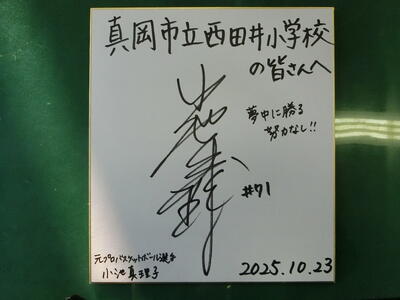 真岡市立西田井小学校
の皆さんへ
夢中に勝る
努力なし!!
#71
元プロバスケットボール選手
小池真理子
2025.10.23